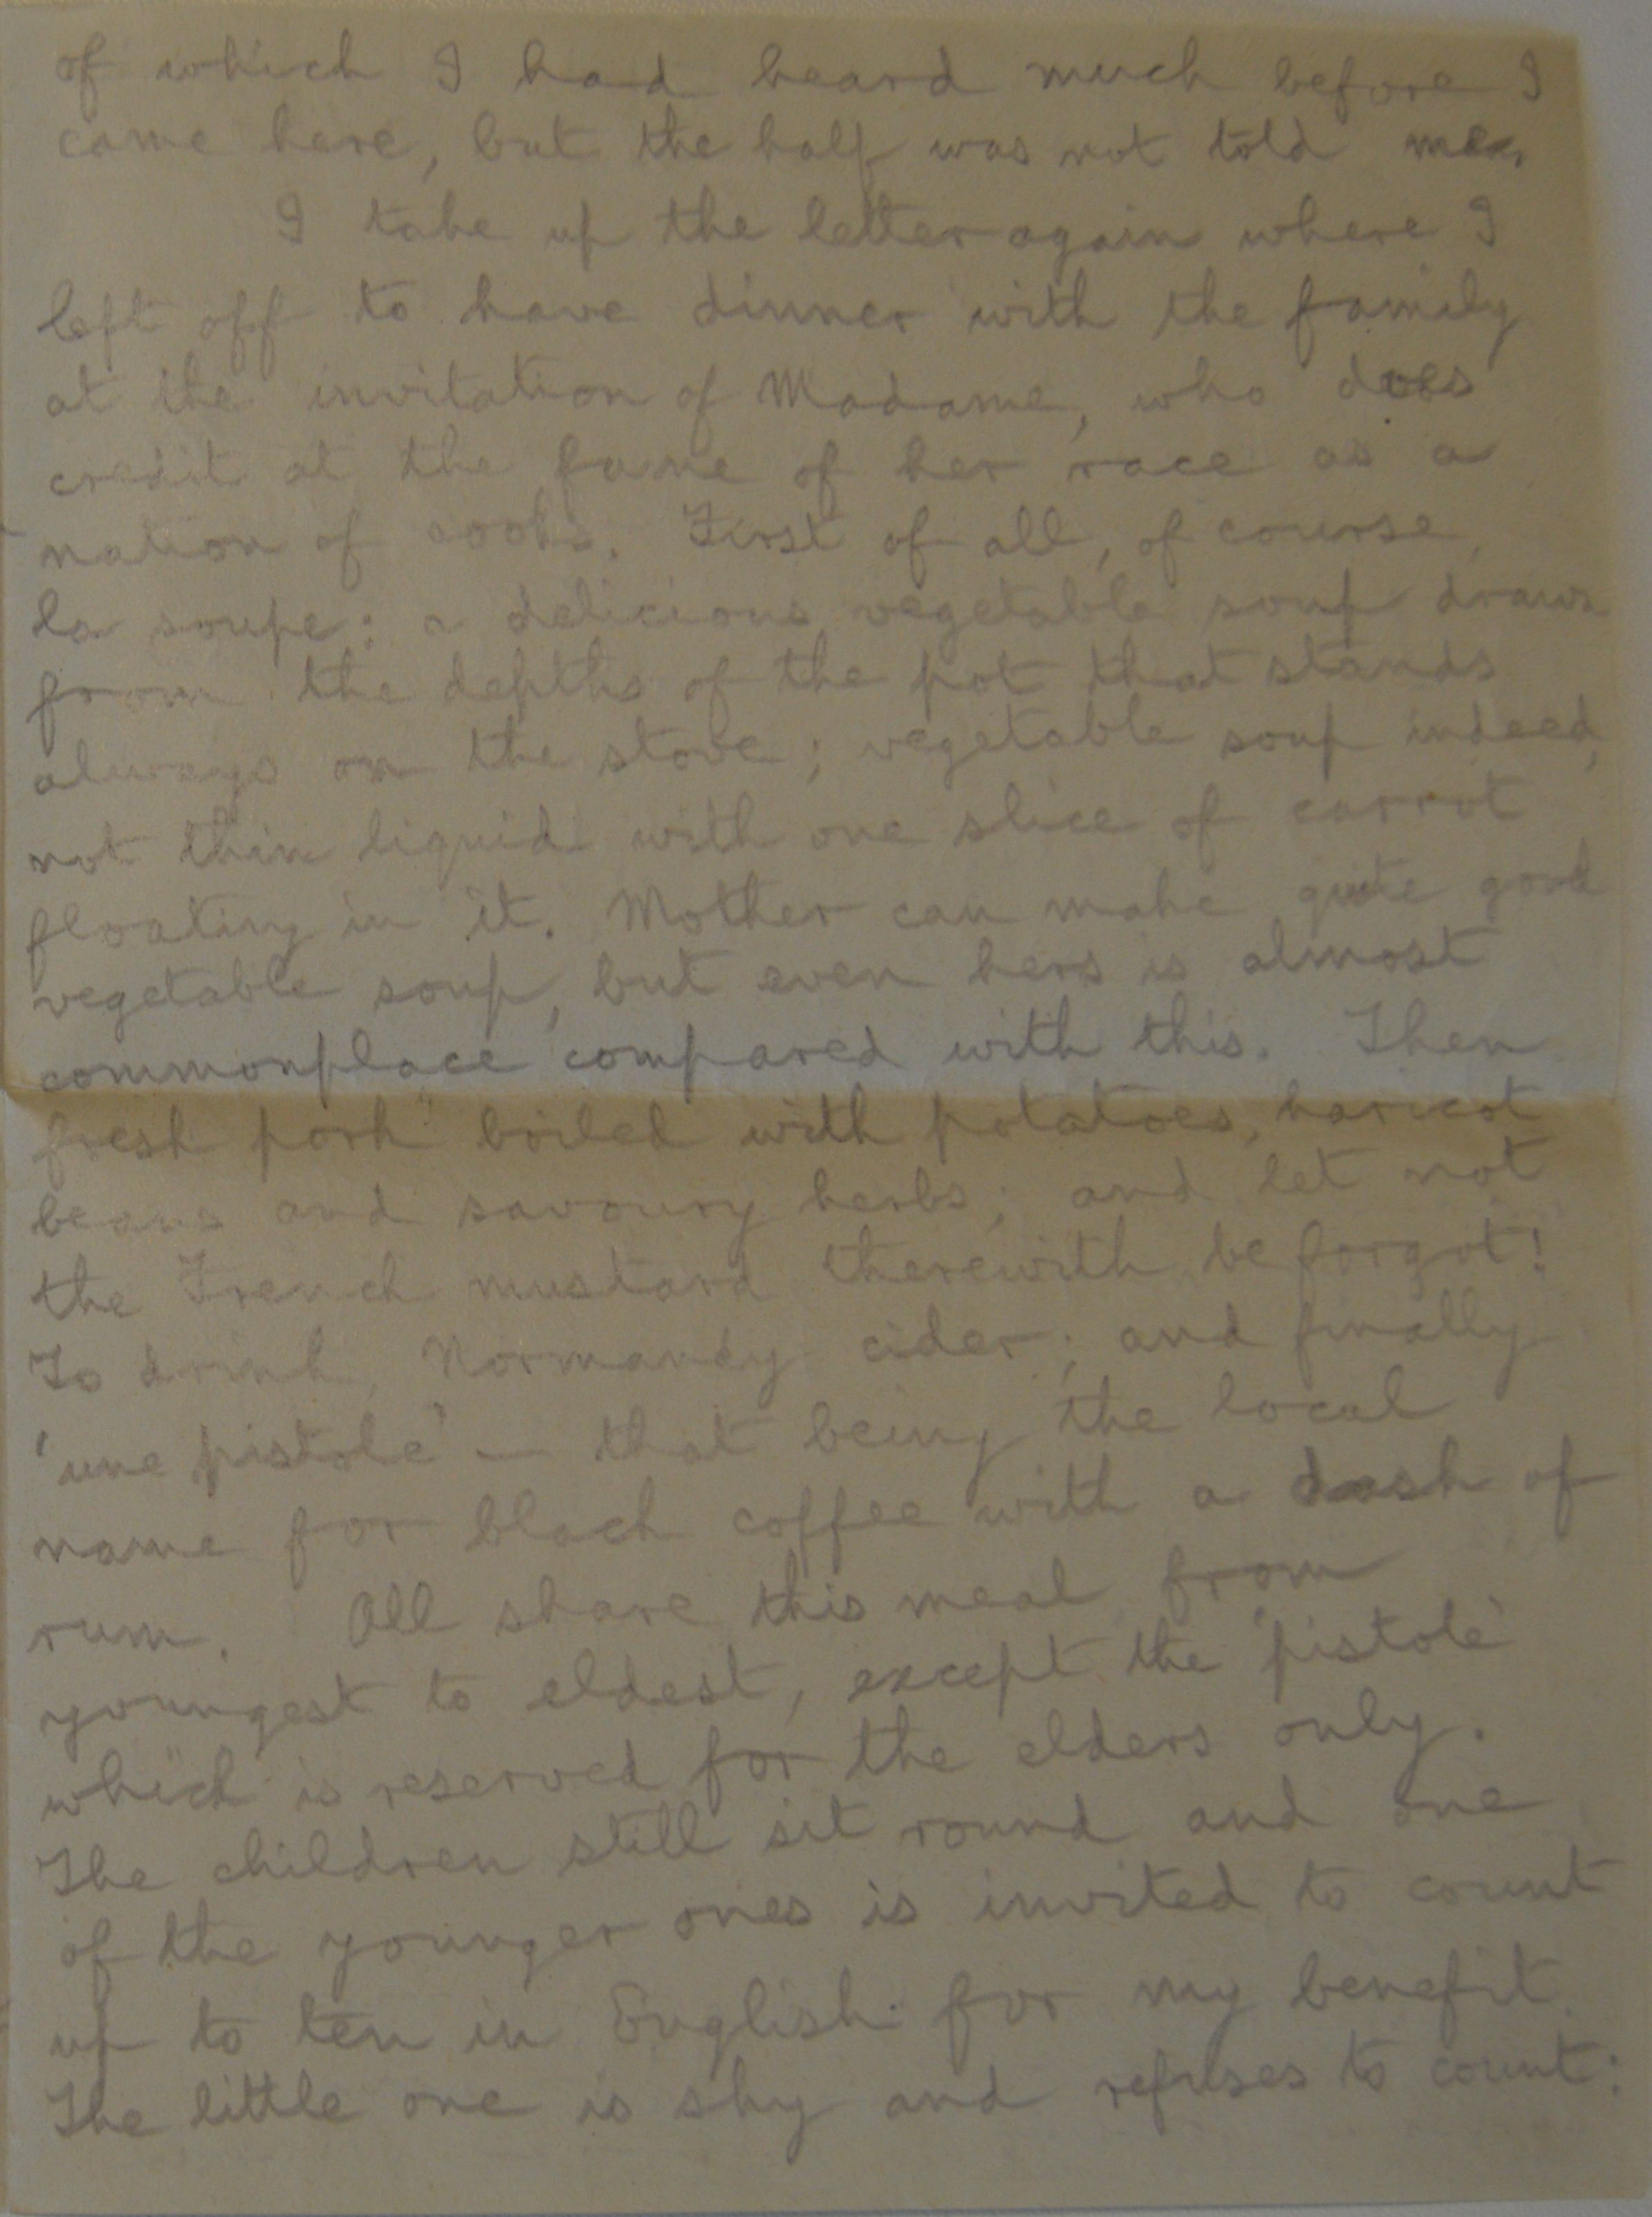 of which I had heard much before I
came here, but the half was not told me.
I take up the letter again where I
left off to have dinner with the family
at the invitation of Madame, who does
credit at the fame of her race as a
nation of cooks. First of all, of course,
la soupe: a delicious vegetable soup drawn
from the depths of the pot that stands
always on the stove; vegetable soup indeed,
not thin liquid with one slice of carrot
floating in it. Mother can make quite good
vegetable soup, but even hers is almost
commonplace compared with this. Then
fresh pork boiled with potatoes, haricot
beans and savoury herbs; and let not
the French mustard therewith be forgot!
To drink, Normandy cider; and finally
'une pistole' — that being the local
name for black coffee with a dash of
rum. All share this meal from
youngest to eldest, except the 'pistole'
which is reserved for the elders only.
The children still sit round and one
of the younger ones is invited to count
up to ten in English for my benefit.
The little one is shy and refuses to count: